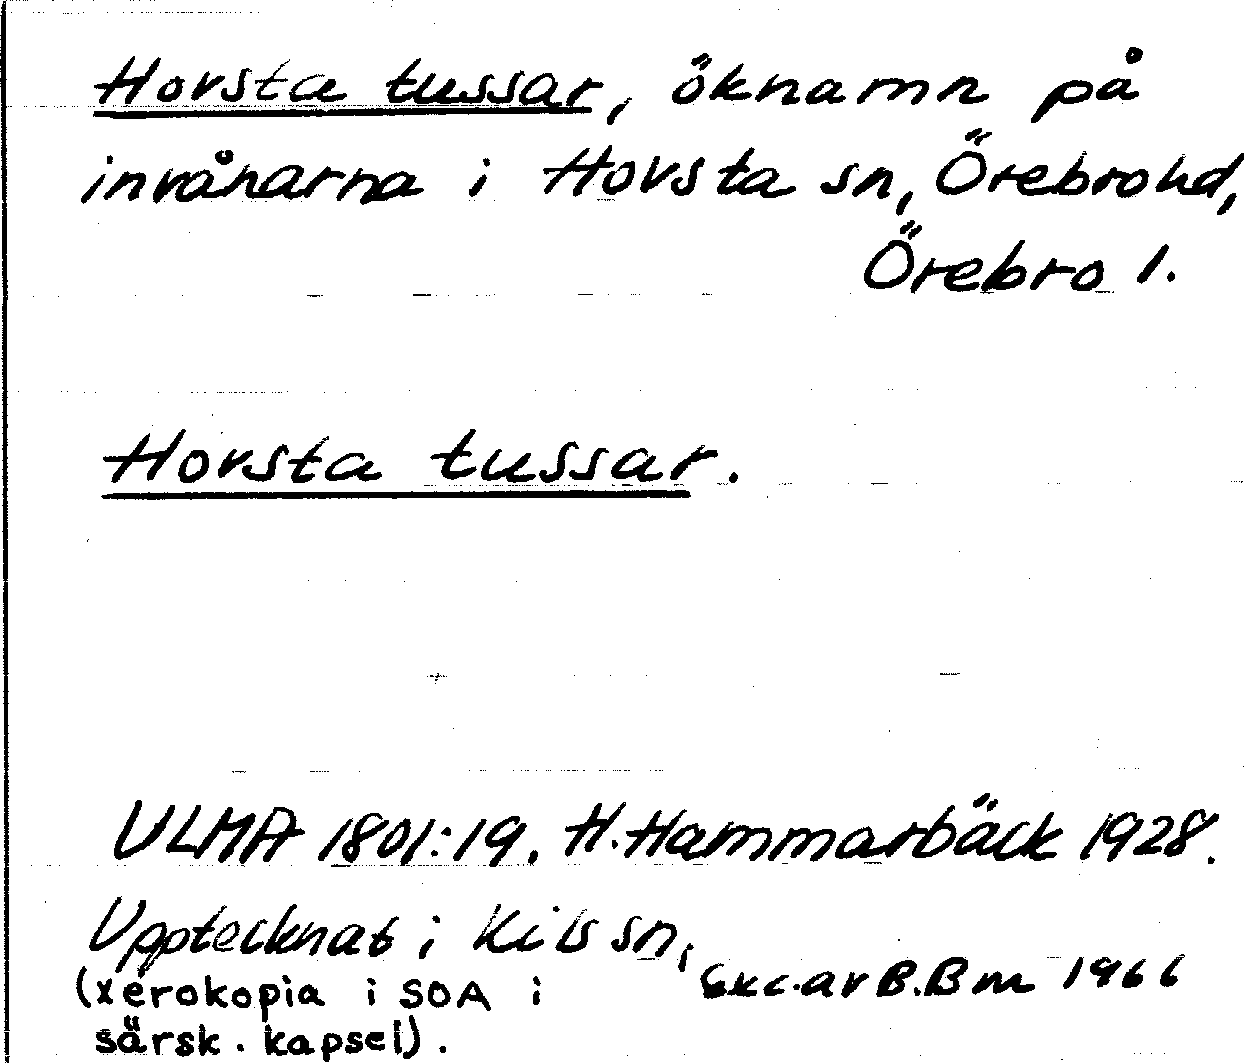 Hovsta tussar, öknamn på
invånarna i Hovsta sn, Örebro hd,
Örebro l.
Hovsta tussar.
ULMA 1801:19. H. Hammarbäck 1928.
Upptecknat i Kils sn,
Exc. av B.Bm 1966
(xerokopia i SOA i
särsk. kapsel).